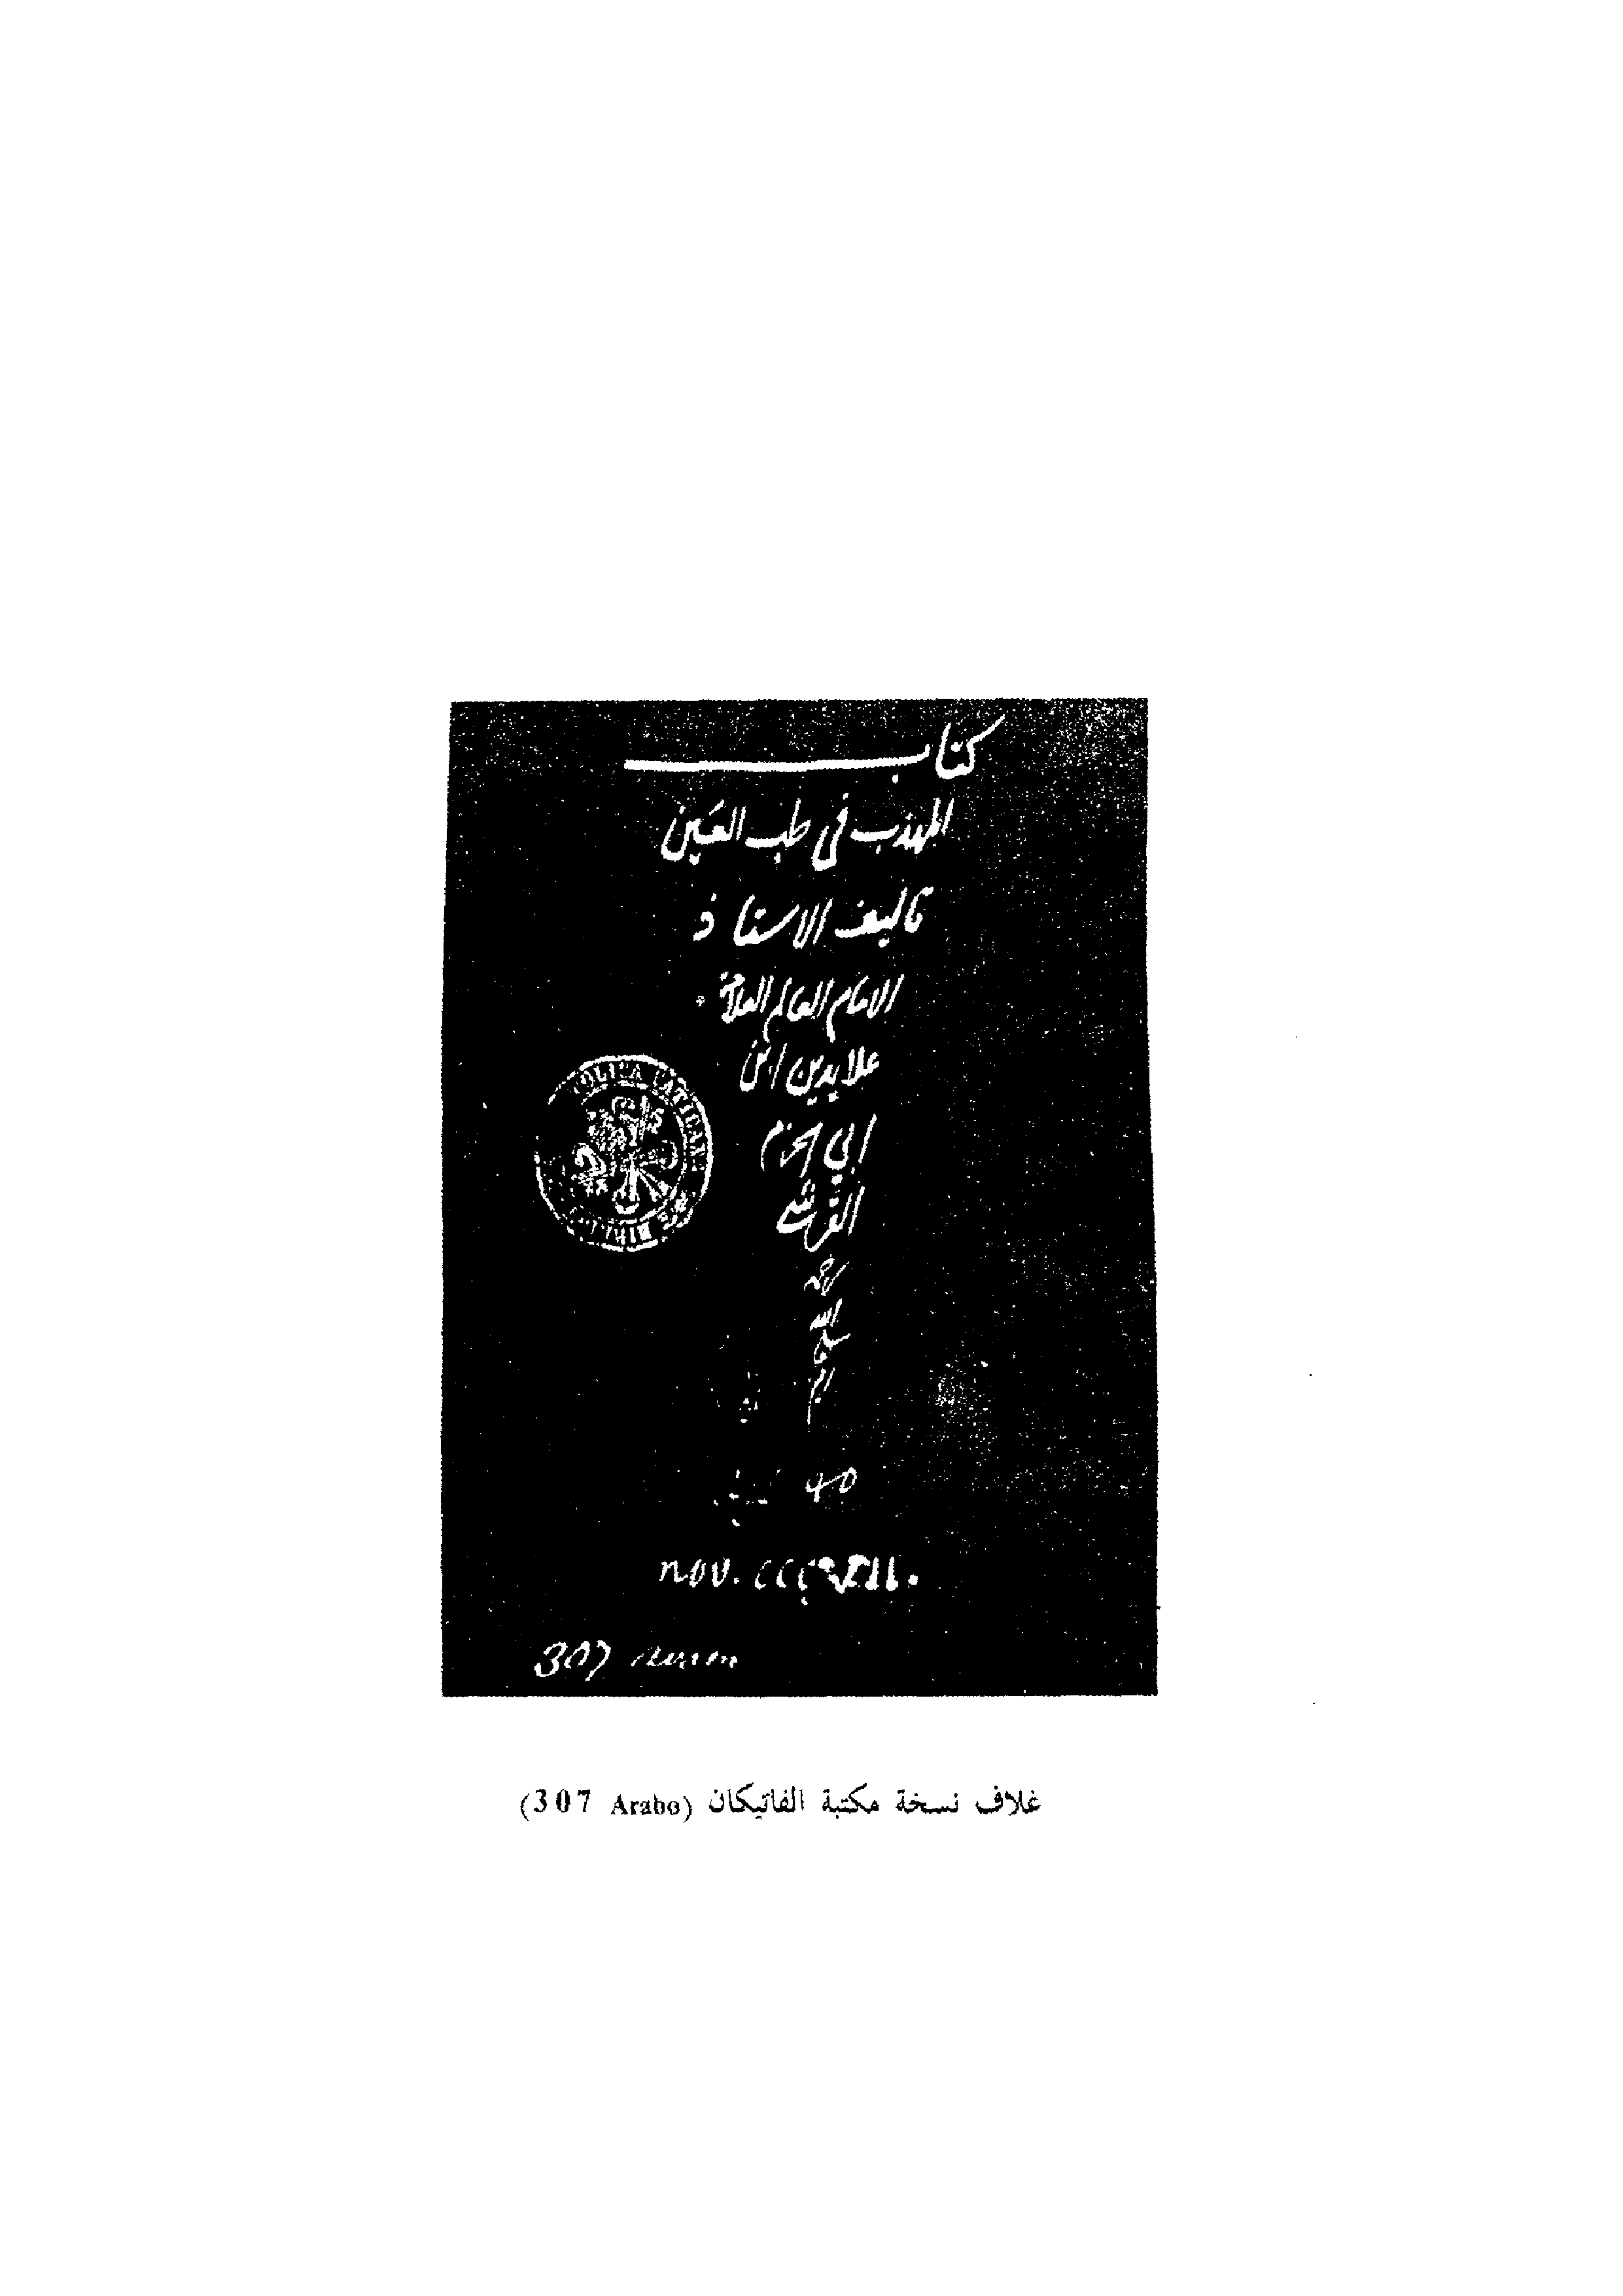 كتاب
المهذب في طب العين
تاليف الاستاذ
الامام العالم العلامة
علايدين ابن
ابي الحزم
القرشي
رحمه
الله
40
nov.
307
غلاف نسخة مكتبة الفاتيكان (307 Arabo)